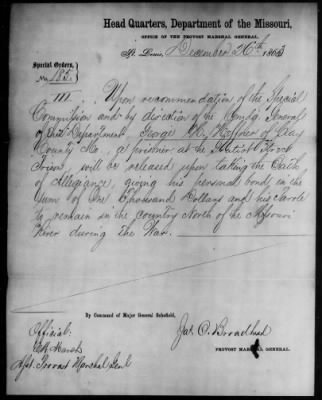 Head Quarters, Department of the Missouri,
OFFICE OF THE PROVOST MARSHAL GENERAL.
St. Louis, December 26th 1863
Special Orders,
No. 185.
III. Upon recommendation of the Special
Commission and by direction of the Comdg. General
of this Department, George W. of Clay
County Mo, a prisoner at the Gratiot Street
Prison, will be released upon taking the Oath
of Allegiance, giving his personal bond in the
sum of One Thousand Dollars and his Parole
to remain in the country North of the Missouri
River during the War.
By Command of Major General Schofield,
Official: Jas. O. Broadhead
PROVOST MARSHAL GENERAL.
Asst. Provost Marshal Genl